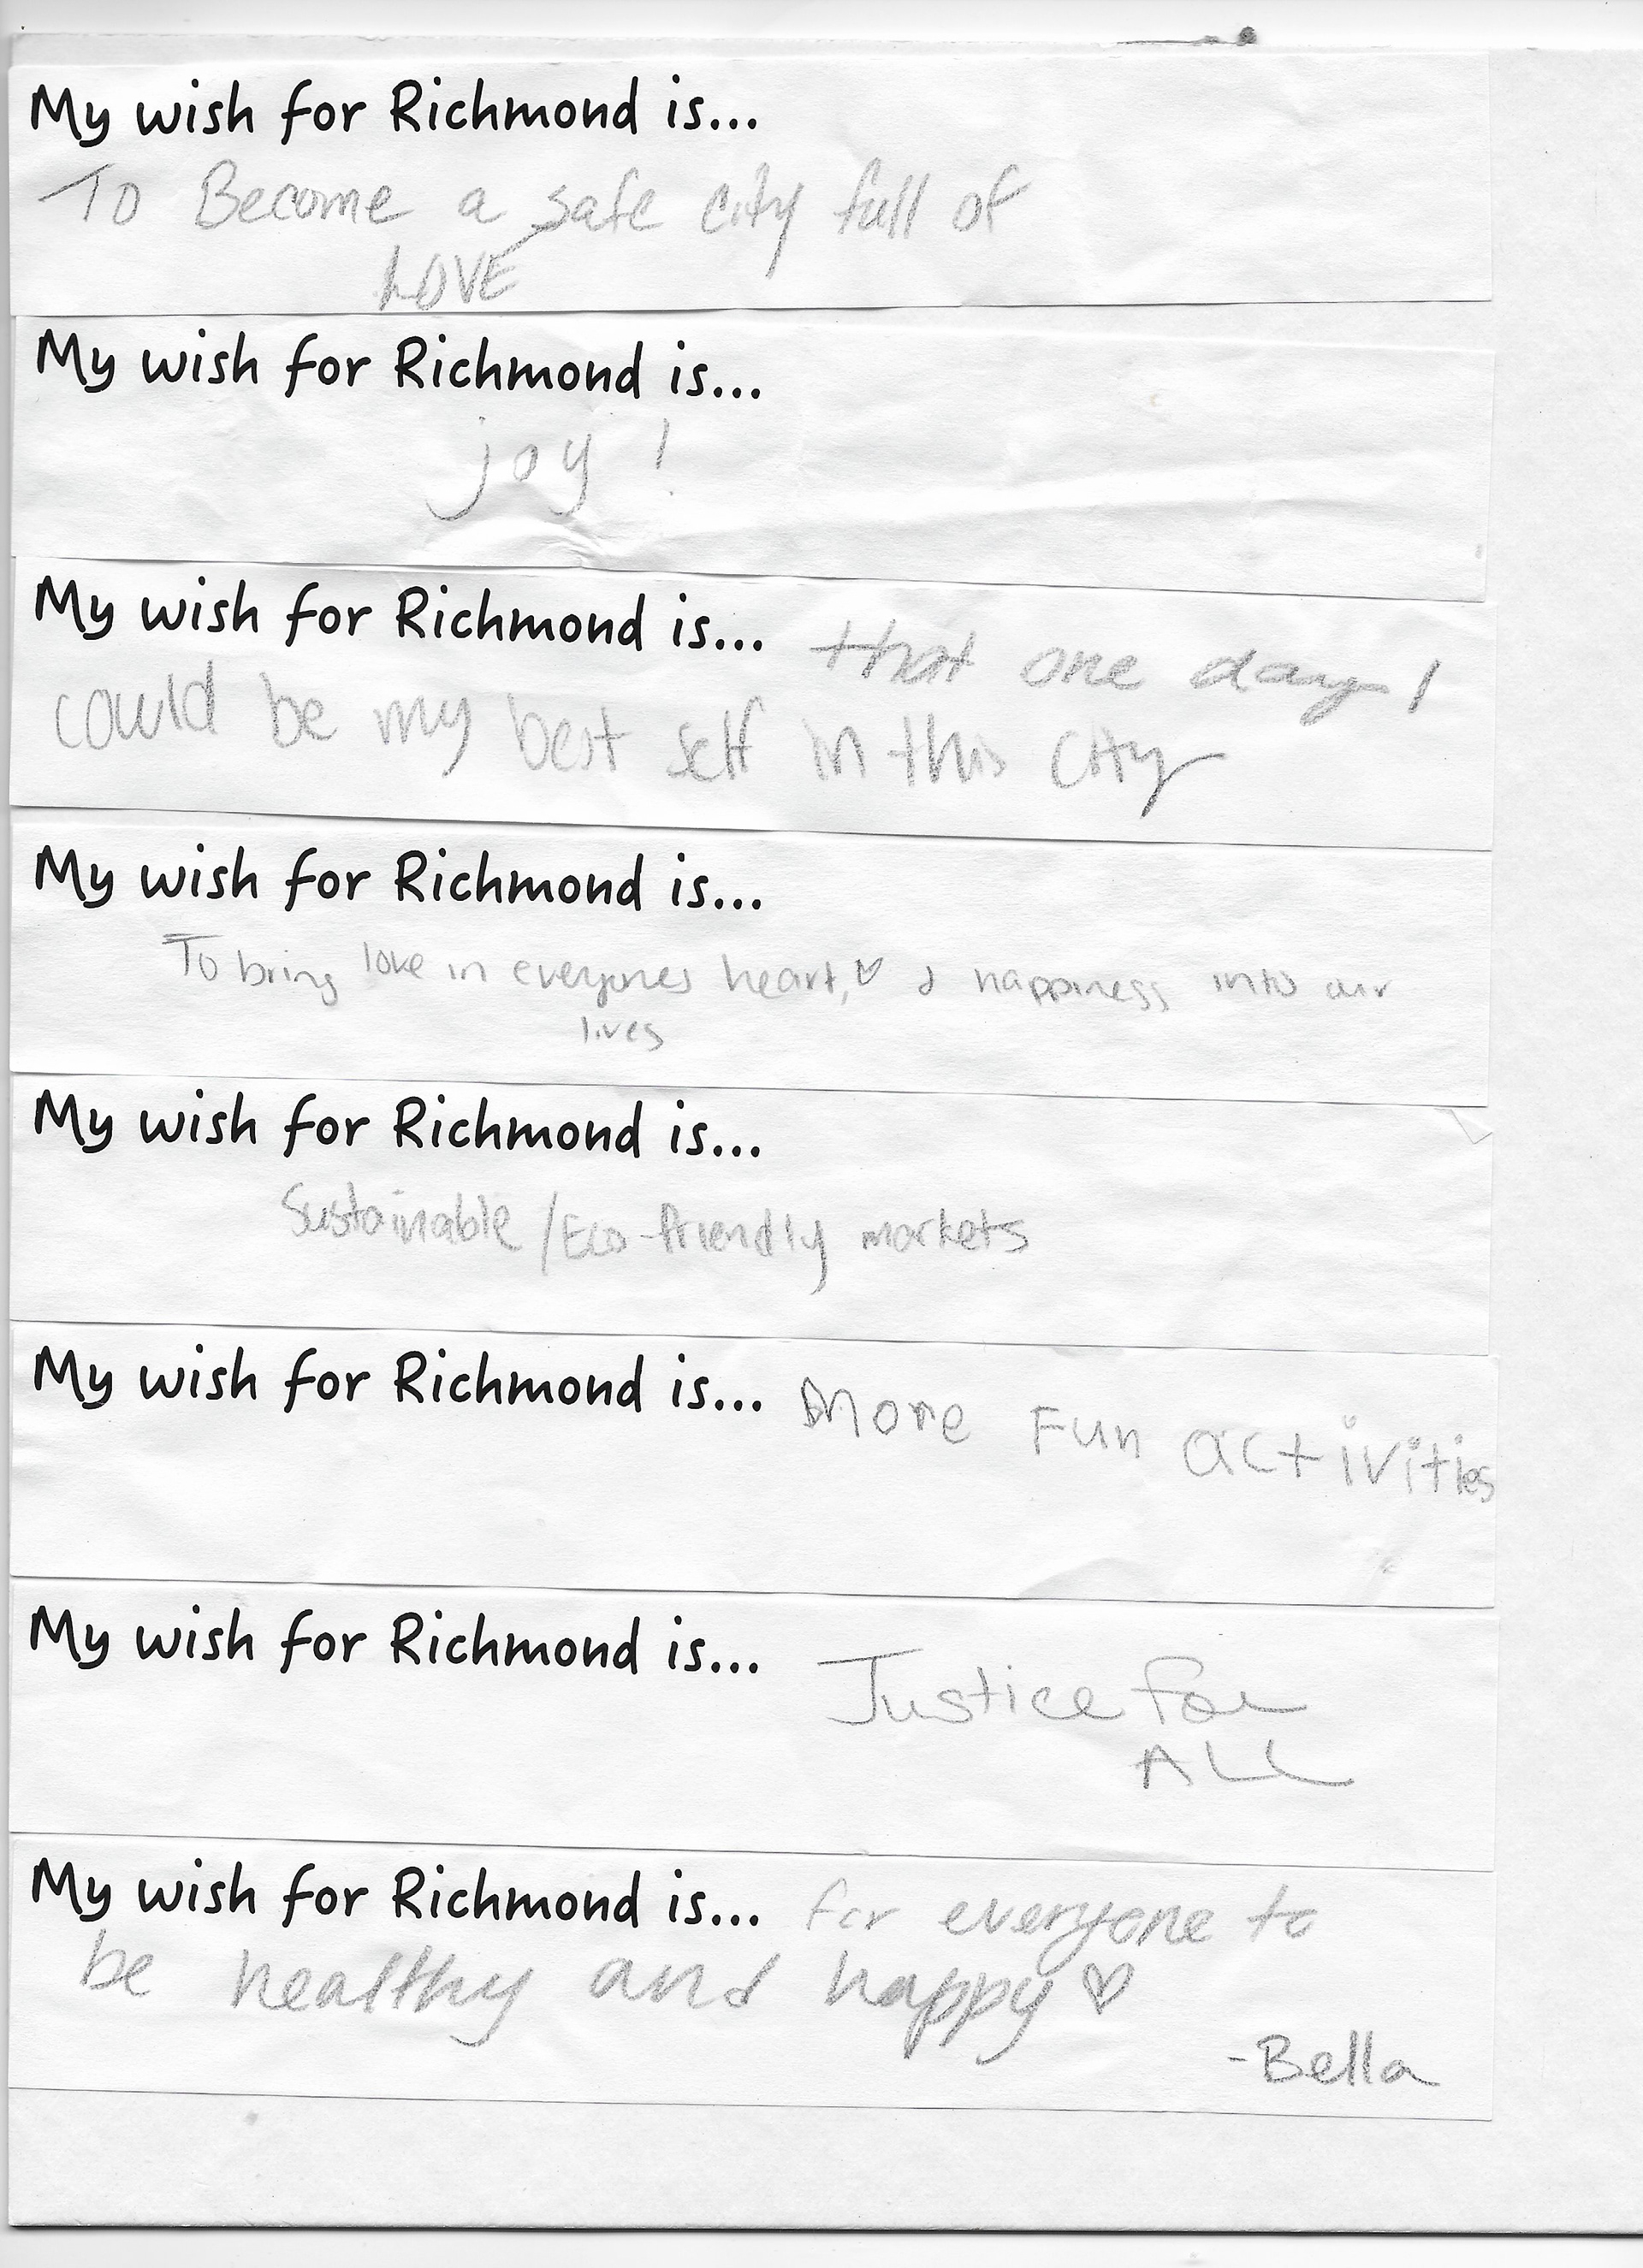 My wish for Richmond is...
To Become a safe city full of
LOVE
My wish for Richmond is...
joy !
My wish for Richmond is... that one day I
could be my best self in this city
My wish for Richmond is...
To bring love in everyones heart, ♡ & happiness into our
lives
My wish for Richmond is...
Sustainable /Eco-friendly markets
My wish for Richmond is... More Fun activities
My wish for Richmond is... Justice for
ALL
My wish for Richmond is... for everyone to
be healthy and happy ♡
-Bella